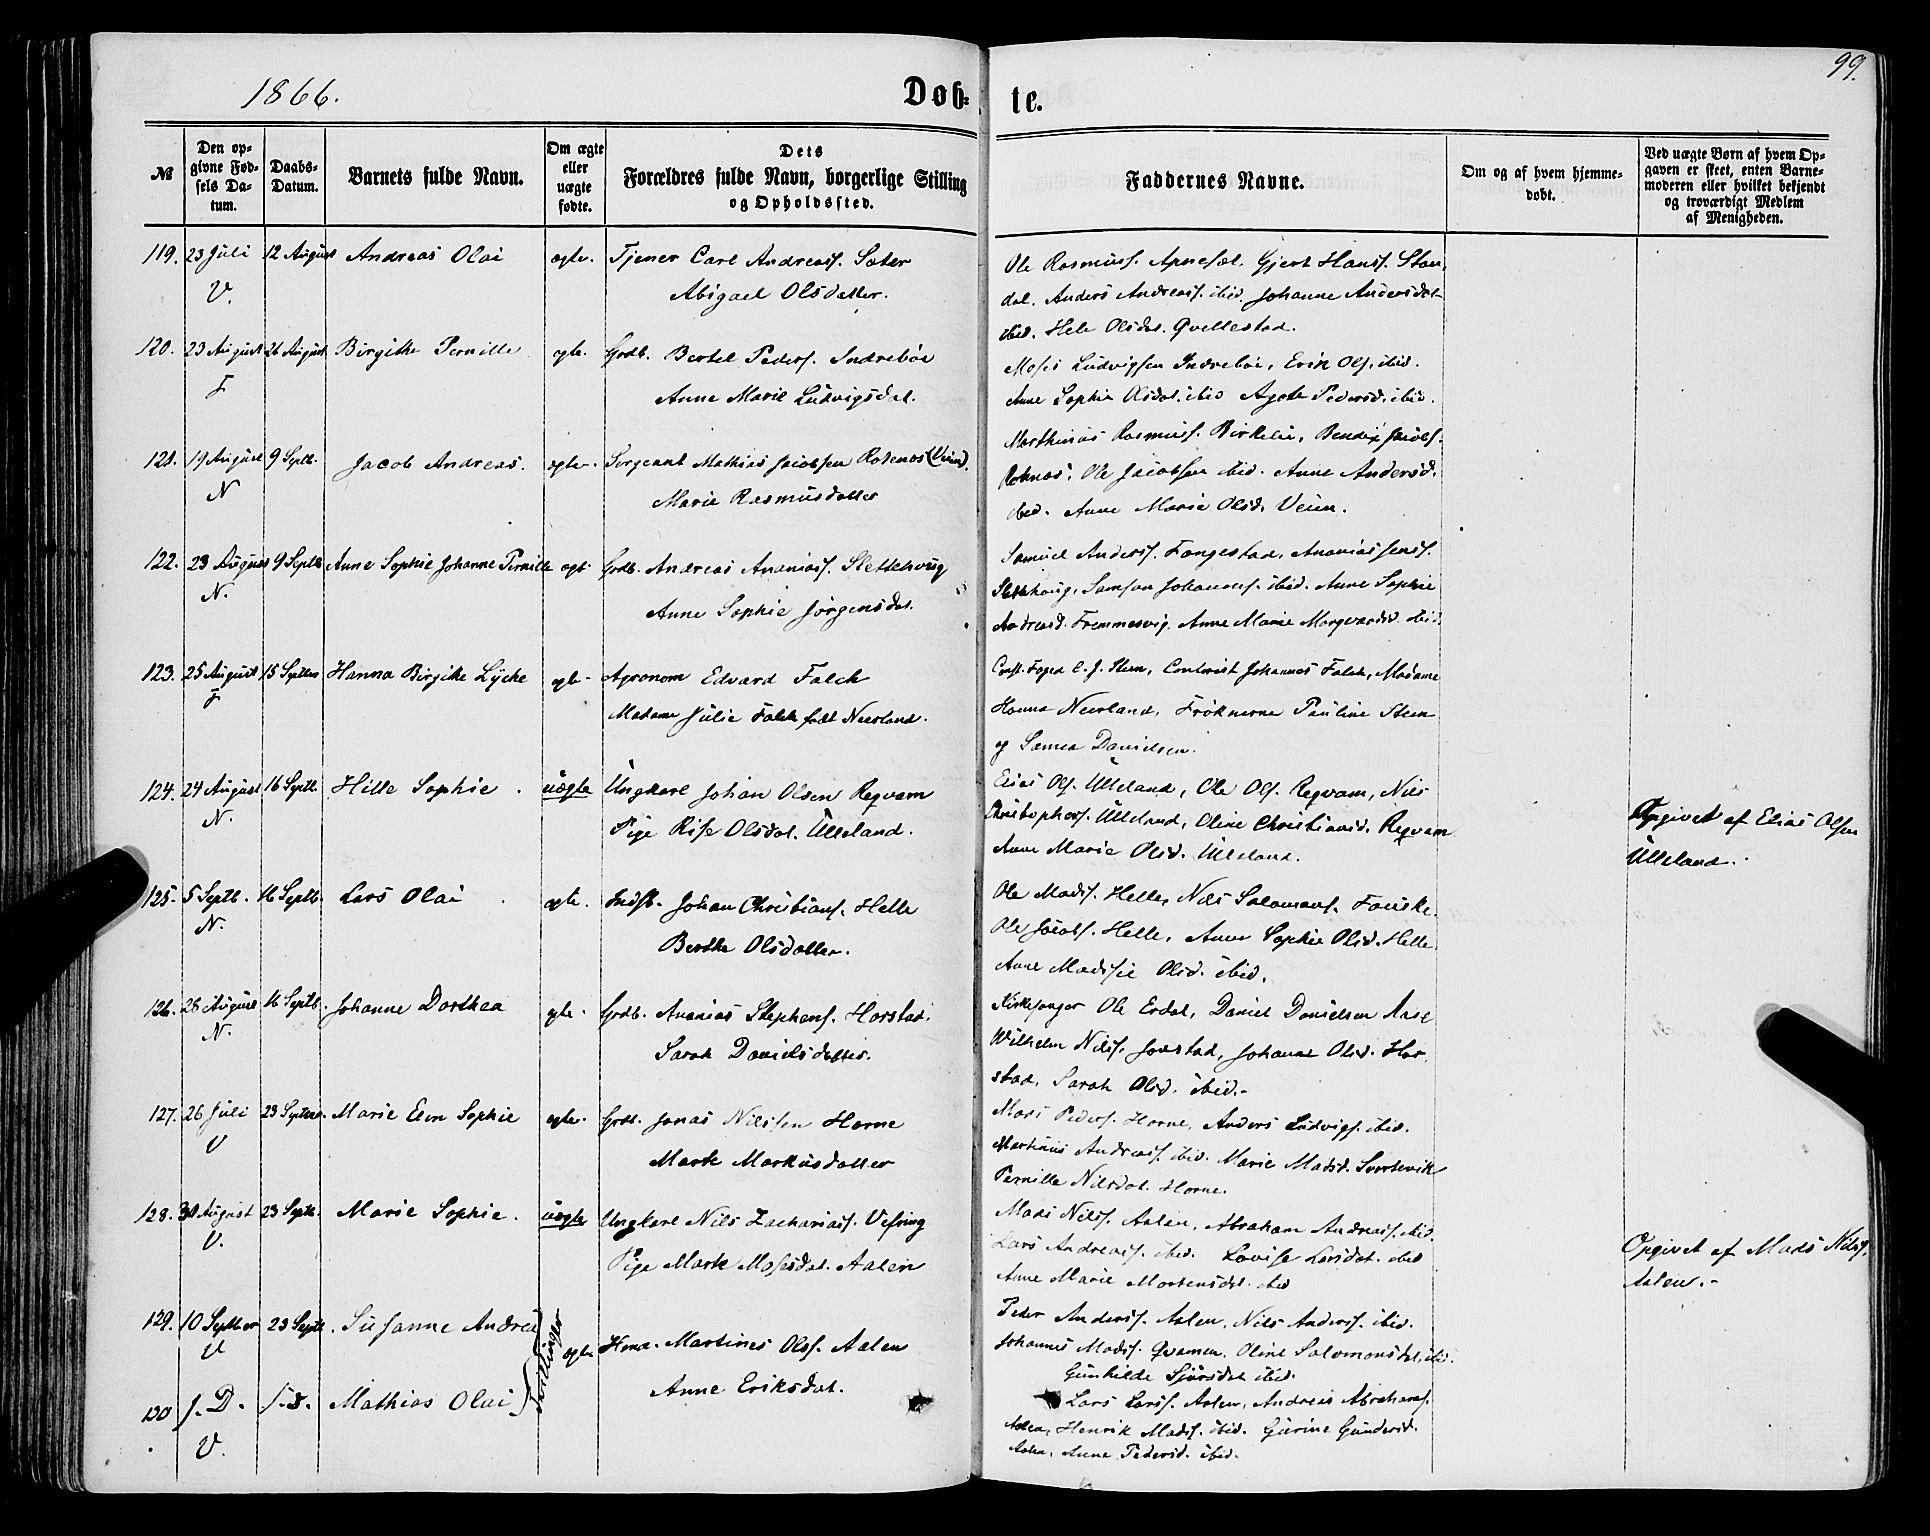 99.
1866.
Døb-
te.
№
Den op-
givne Fød-
sels Da-
tum.
Daabs-
Datum.
Barnets fulde Navn.
Om ægte
eller
uægte
fødte.
Dets
Forældres fulde Navn, borgerlige Stilling
og Opholdssted.
Faddernes Navne.
Om og af hvem hjemme-
døbt.
Ved uægte Børn af hvem Op-
gaven er skeet, enten Barne-
moderen eller hvilket bekjendt
og troværdigt Medlem
af Menigheden.
119. 23 Juli 12 August Andreas Olai ægte. Tjener Carl Andreass. Sæter
V. Abigael Olsdatter.
Ole Rasmuss. Apnesæt, Gjert Hanss. Stan-
dal. Anders Andreass. ibid. Johanne Andersdat
ibid. Hele Olsdat. Qvellestad.
120. 23 August 26 August Birgithe Pernille ægte. Grdb. Bertel Peders. Indrebøe
F Anne Marie Ludvigsdat.
Moses Ludvigsen Indrebøe, Erik Ols. ibid.
Anne Sophie Olsdat. ibid Agate Pedersd. ibid.
121. 19 August 9 Septb. Jacob Andreas. ægte. Sergeant Mathias Jacobsen Rotenes (Veien).
N Marie Rasmusdatter
Marthinus Rasmuss. Birkelie, Bendix Jacobs.
Rotenes, Ole Jacobsen ibid. Anne Andersd.
ibid. Anne Marie Olsd. Veien.
122. 23 August 9 Septb Anne Sophie Johanne Pernille ægt. Grdb. Andreas Ananiass. Slettehoug
N. Anne Sophie Jörgensdat.
Samuel Anderss. Fongestad, Ananias Jenss.
Slettehoug, Samson Johanness. ibid. Anne Sophie
Andreasd. Fremmesvig, Anne Marie Margvardsd. ibid.
123. 25 August 15 Septbr Hanna Birgithe Lyche ægte Agronom Edvard Falch
F Madame Julie Falch født Neerland.
Const. Foged C. J. Steen, Contorist Johannes Falch, Madame
Hanna Neerland, Frøknerne Pauline Steen
og Samea Danielsen.
124. 24 August 16 Septb. Hille Sophie. uægte Ungkarl Johan Olsen Reqvam
N. Pige Rise Olsdat. Ulleland.
Elias Ols. Ulleland, Ole Ols. Reqvam, Nils
Christophers. Ulleland, Oline Christiansd. Reqvam
Anne Marie Olsd. Ulleland.
Opgivet af Elias Olsen
Ulleland.
125. 5 Septb. 16 Septb. Lars Olai ægte. Indst. Johan Christians. Helle
N. Berthe Olsdatter.
Ole Madss. Helle, Nils Salamons. Fauske.
Ole Jacobs. Helle, Anne Sophie Olsd. Helle
Anne Madsie Olsd. ibid.
126. 28 August 16 Septb. Johanne Dorthea ægte. Grdb. Ananias Stephens. Horstad.
N. Sarah Danielsdatter.
Kirkesanger Ole Erdal, Daniel Danielsen Aase
Wilhelm Nilss. Horstad, Johanne Olsd. Hor-
stad, Sarah Olsd. ibid.
127. 26 Juli 23 Septbr. Marie Elen Sophie ægte. Grdb. Jonas Nilssen Horne
V Marte Markusdatter
Mads Peders. Horne, Anders Ludvigs. ibid.
Martinus Andreass. ibid. Marie Madsd. Svortevik
Pernille Nilsdat. Horne.
128. 31 August 23 Septb. Marie Sophie. uægte Ungkarl Nils Zachariass. Vefring
V. Pige Marte Mosesdat. Aalen
Mads Nilss. Aalen, Abraham Andreass. ibid.
Lars Andreass. ibid. Lovise Larsdat. ibid
Anne Marie Mortensdat. ibid
Opgivet af Mads Nilss.
Aalen.
129. 10 Septber 23 Septb. Susanne Andrea
V
Tvillinger
ægte Hmd. Martines Olss. Aalen
Anne Eriksdat.
Peder Anderss. Aalen, Nils Anderss. ibid.
Johannes Madss. Qvamen, Oline Salomonsdat. ibid.
Gunhilde Sjursdat ibid.
130 s. D. s. D. Mathias Olai
V.
Lars Larss. Aalen, Andreas Abrahams.
Aalen, Henrik Madss. ibid. Gurine Gundersd.
Aalen, Anne Pedersd. ibid.